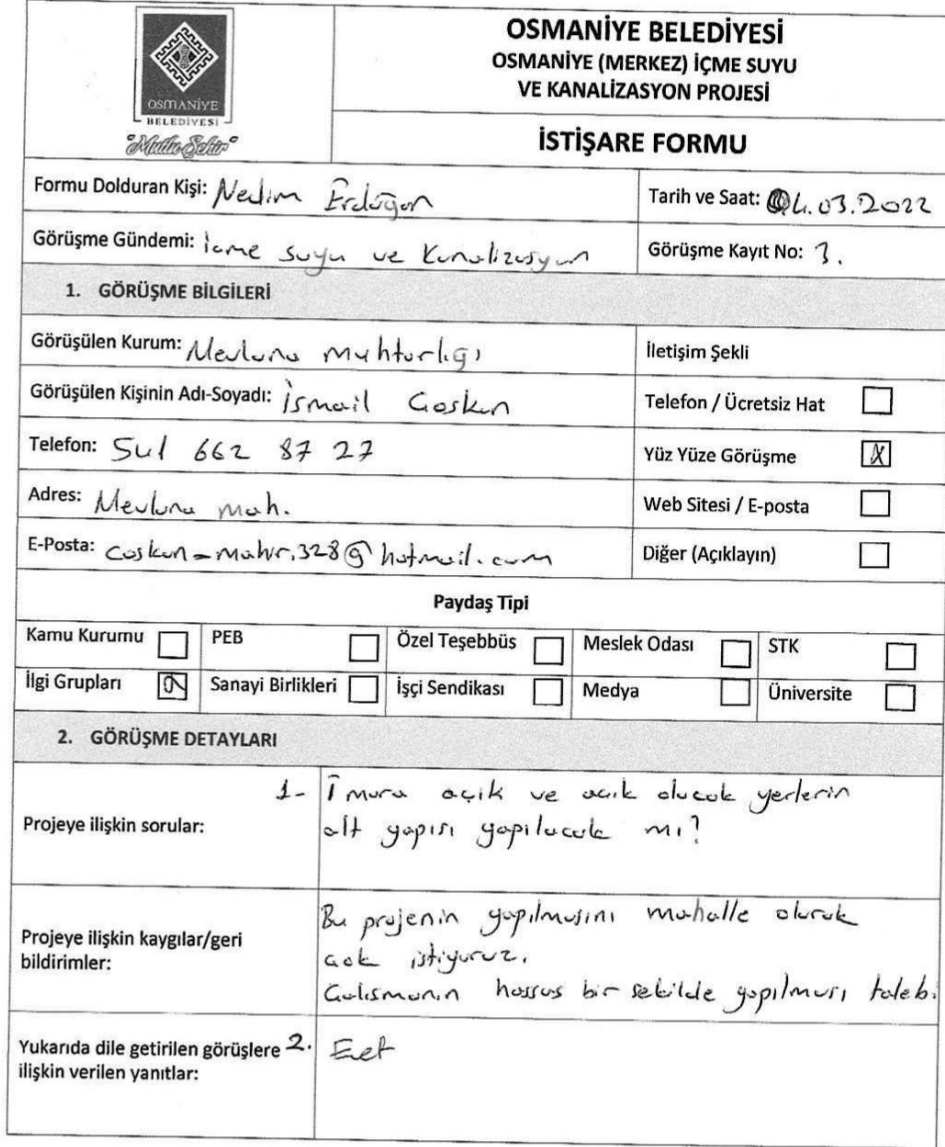 OSMANİYE
BELEDİYESİ
"Mutlu Şehir"
OSMANİYE BELEDİYESİ
OSMANİYE (MERKEZ) İÇME SUYU
VE KANALİZASYON PROJESİ
İSTİŞARE FORMU
Formu Dolduran Kişi: Nedim Erdoğan
Tarih ve Saat: 04.03.2022
Görüşme Gündemi: İcme suyu ve Kanalizasyon
Görüşme Kayıt No: 3.
1. GÖRÜŞME BİLGİLERİ
Görüşülen Kurum: Mevlana muhtarlığı
İletişim Şekli
Görüşülen Kişinin Adı-Soyadı: İsmail Coskun
Telefon / Ücretsiz Hat
Telefon: 541 662 87 27
Yüz Yüze Görüşme
Adres: Mevlana mah.
Web Sitesi / E-posta
E-Posta: coskun-mahir.328@hotmail.com
Diğer (Açıklayın)
Paydaş Tipi
Kamu Kurumu PEB Özel Teşebbüs Meslek Odası STK
İlgi Grupları Sanayi Birlikleri İşçi Sendikası Medya Üniversite
2. GÖRÜŞME DETAYLARI
Projeye ilişkin sorular:
1- İmara açik ve acik olacak yerlerin
alt yapısı yapılacak mı?
Projeye ilişkin kaygılar/geri
bildirimler:
Bu projenin yapılmasını mahalle olarak
cok istiyoruz.
Calısmanın hassas bir sekilde yapılması talebi
Yukarıda dile getirilen görüşlere 2.
ilişkin verilen yanıtlar:
Evet